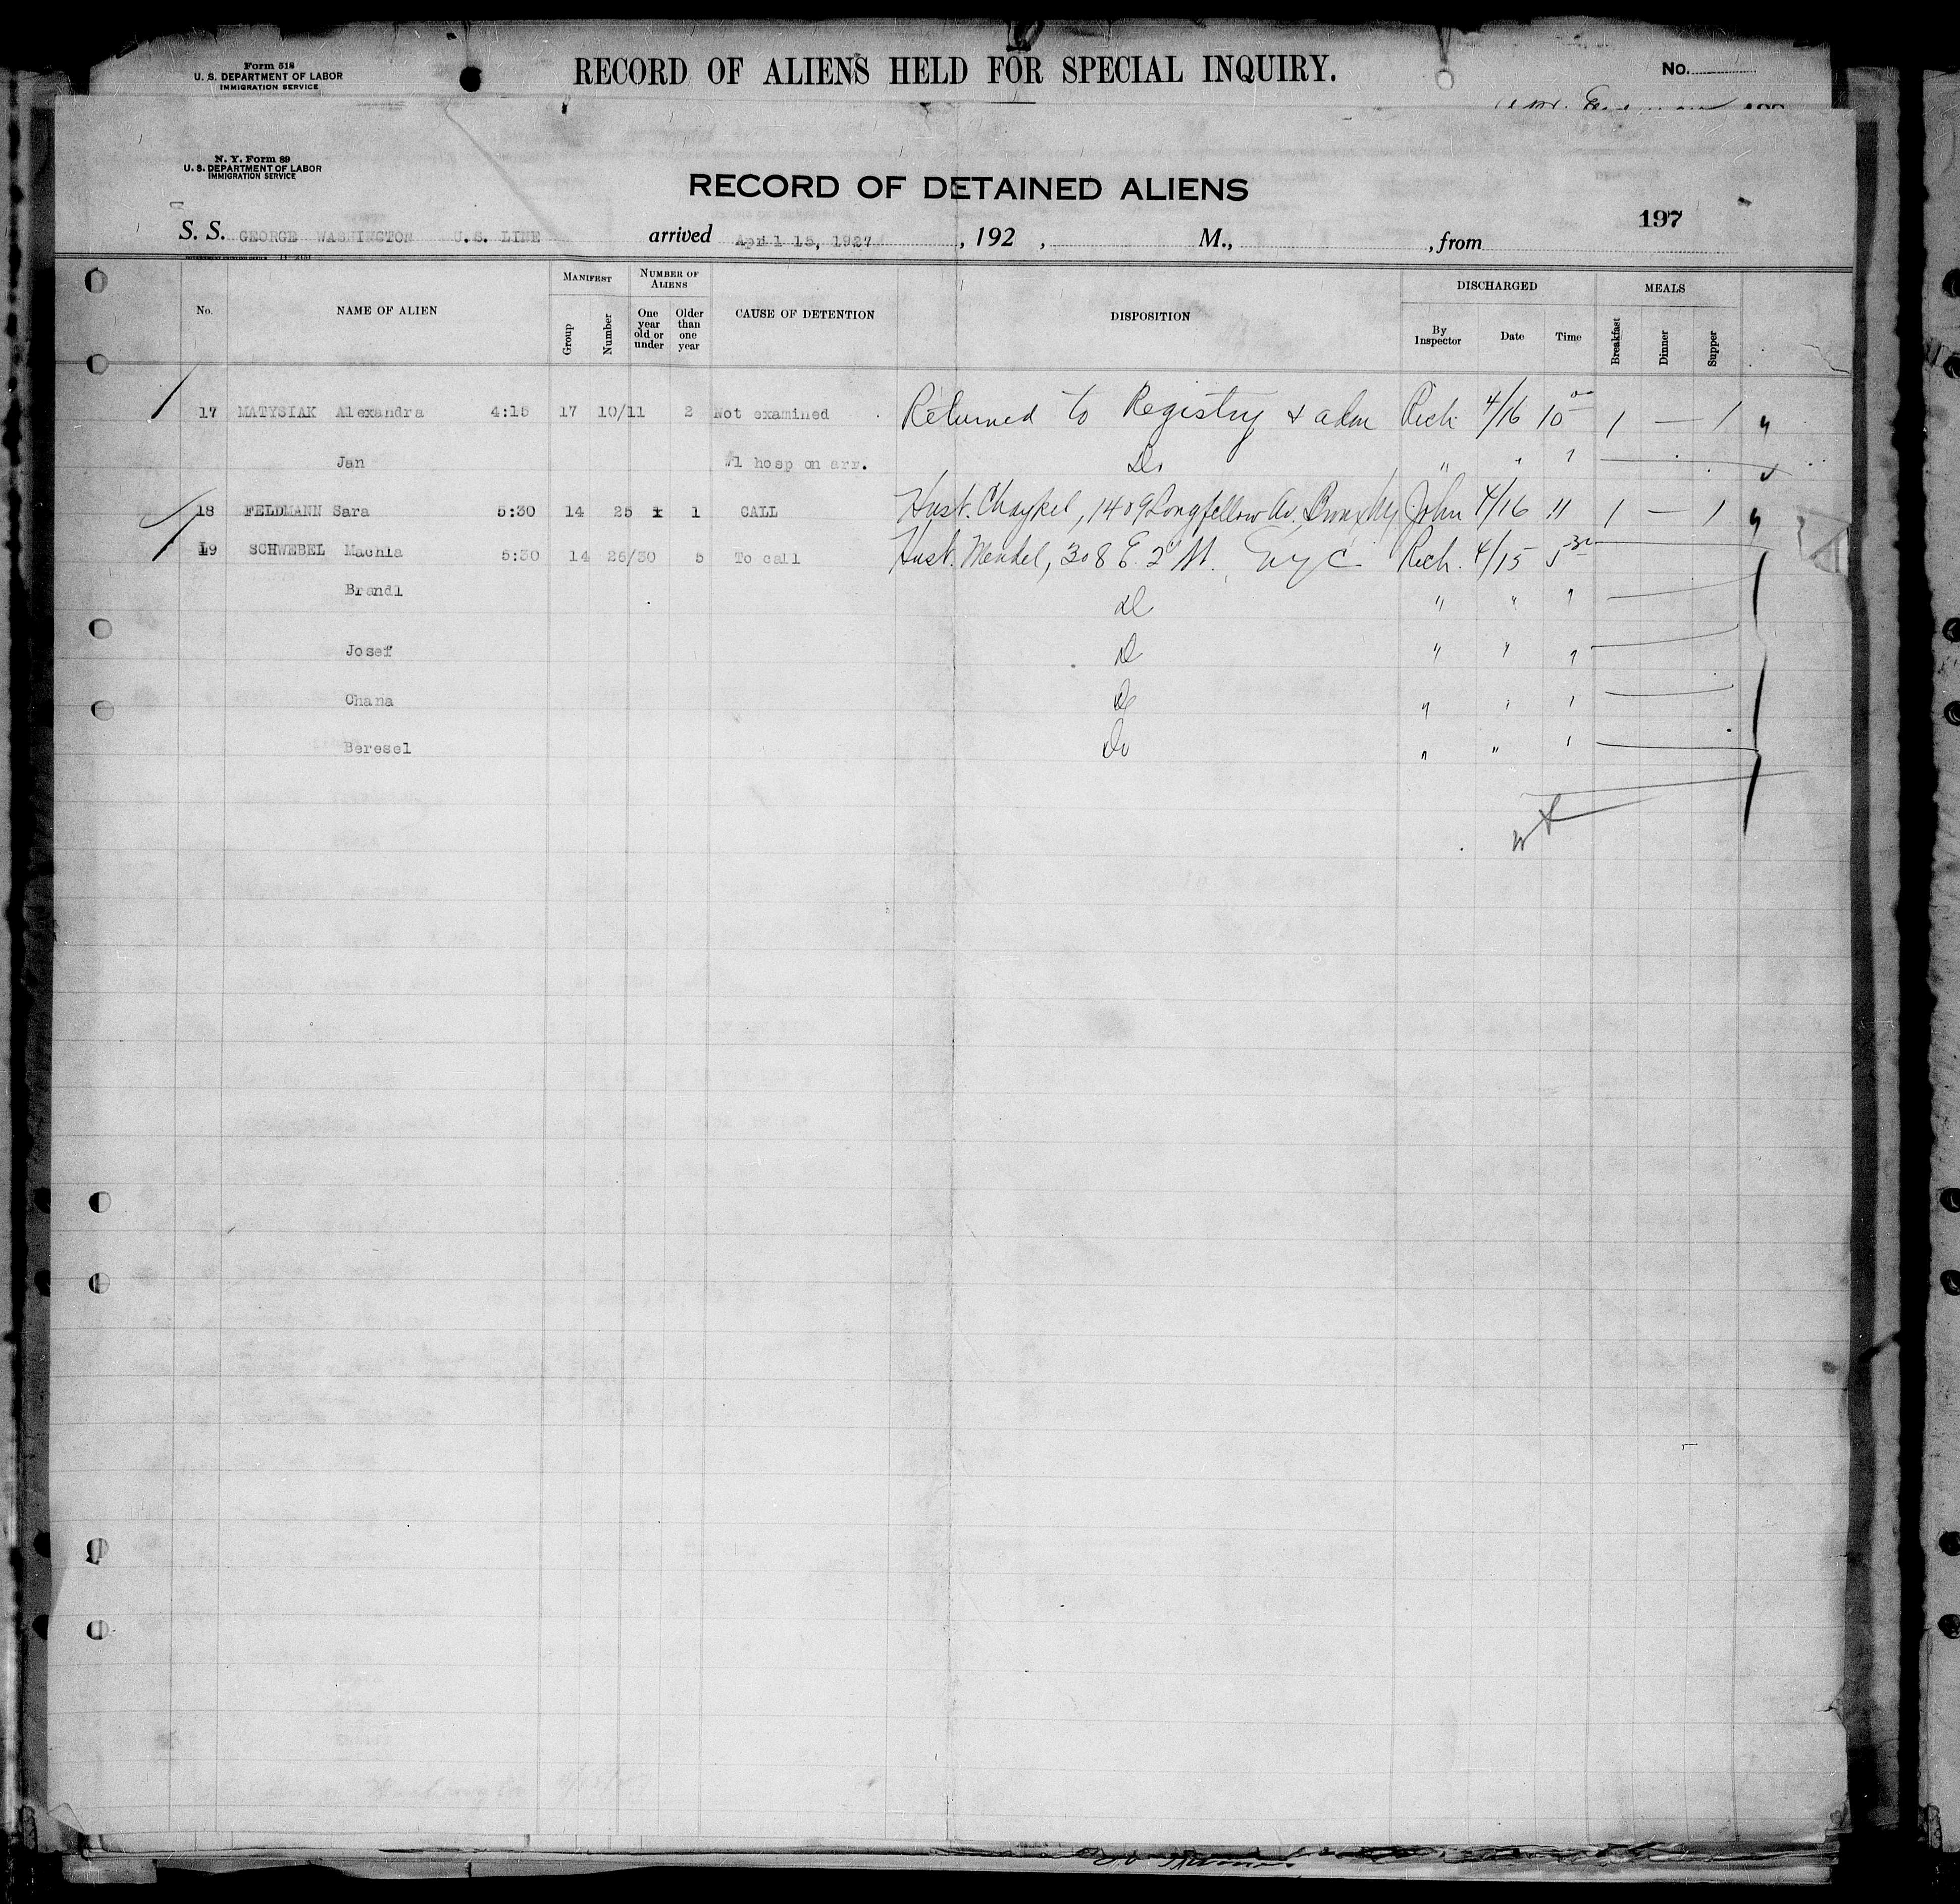 Form 518
U. S. DEPARTMENT OF LABOR
IMMIGRATION SERVICE
RECORD OF ALIENS HELD FOR SPECIAL INQUIRY.
No.
N. Y. Form 89
U. S. DEPARTMENT OF LABOR
IMMIGRATION SERVICE
RECORD OF DETAINED ALIENS
197
S. S. GEORGE WASHINGTON U.S. LINE arrived April 15, 1927 , 192 , M., , from
No. NAME OF ALIEN MANIFEST NUMBER OF ALIENS CAUSE OF DETENTION DISPOSITION DISCHARGED MEALS
Group Number One year old or under Older than one year By Inspector Date Time Breakfast Dinner Supper
17 MATYSIAK Alexandra 4:15 17 10/11 2 Not examined Returned to Registry & adm Rich 4/16 10 00 1 — 1 "
Jan #1 hosp on arr. Do " " "
18 FELDMANN Sara 5:30 14 25 1 CALL Husb. Chaykel, 1409 Longfellow Av. Bronx Ny John 4/16 11 1 — 1 "
19 SCHWEBEL Machla 5:30 14 26/30 5 To call Husb. Mendel, 308 E. 2d St. NYC Rich. 4/15 5 30
Brandl Do " " "
Josef Do " " "
Chana Do " " "
Beresel Do " " "